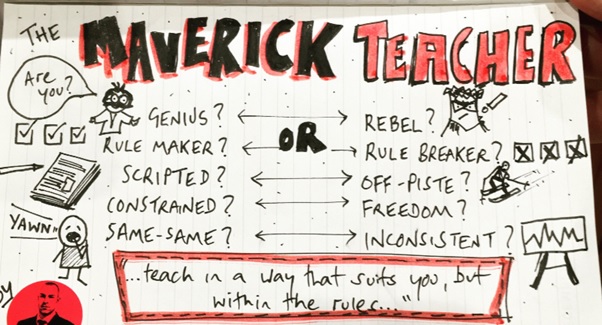 THE MAVERICK TEACHER
Are you?
GENIUS? OR REBEL?
RULE MAKER? RULE BREAKER?
SCRIPTED? OFF-PISTE?
CONSTRAINED? FREEDOM?
YAWN
SAME-SAME? INCONSISTENT?
"...teach in a way that suits you, but
within the rules..."